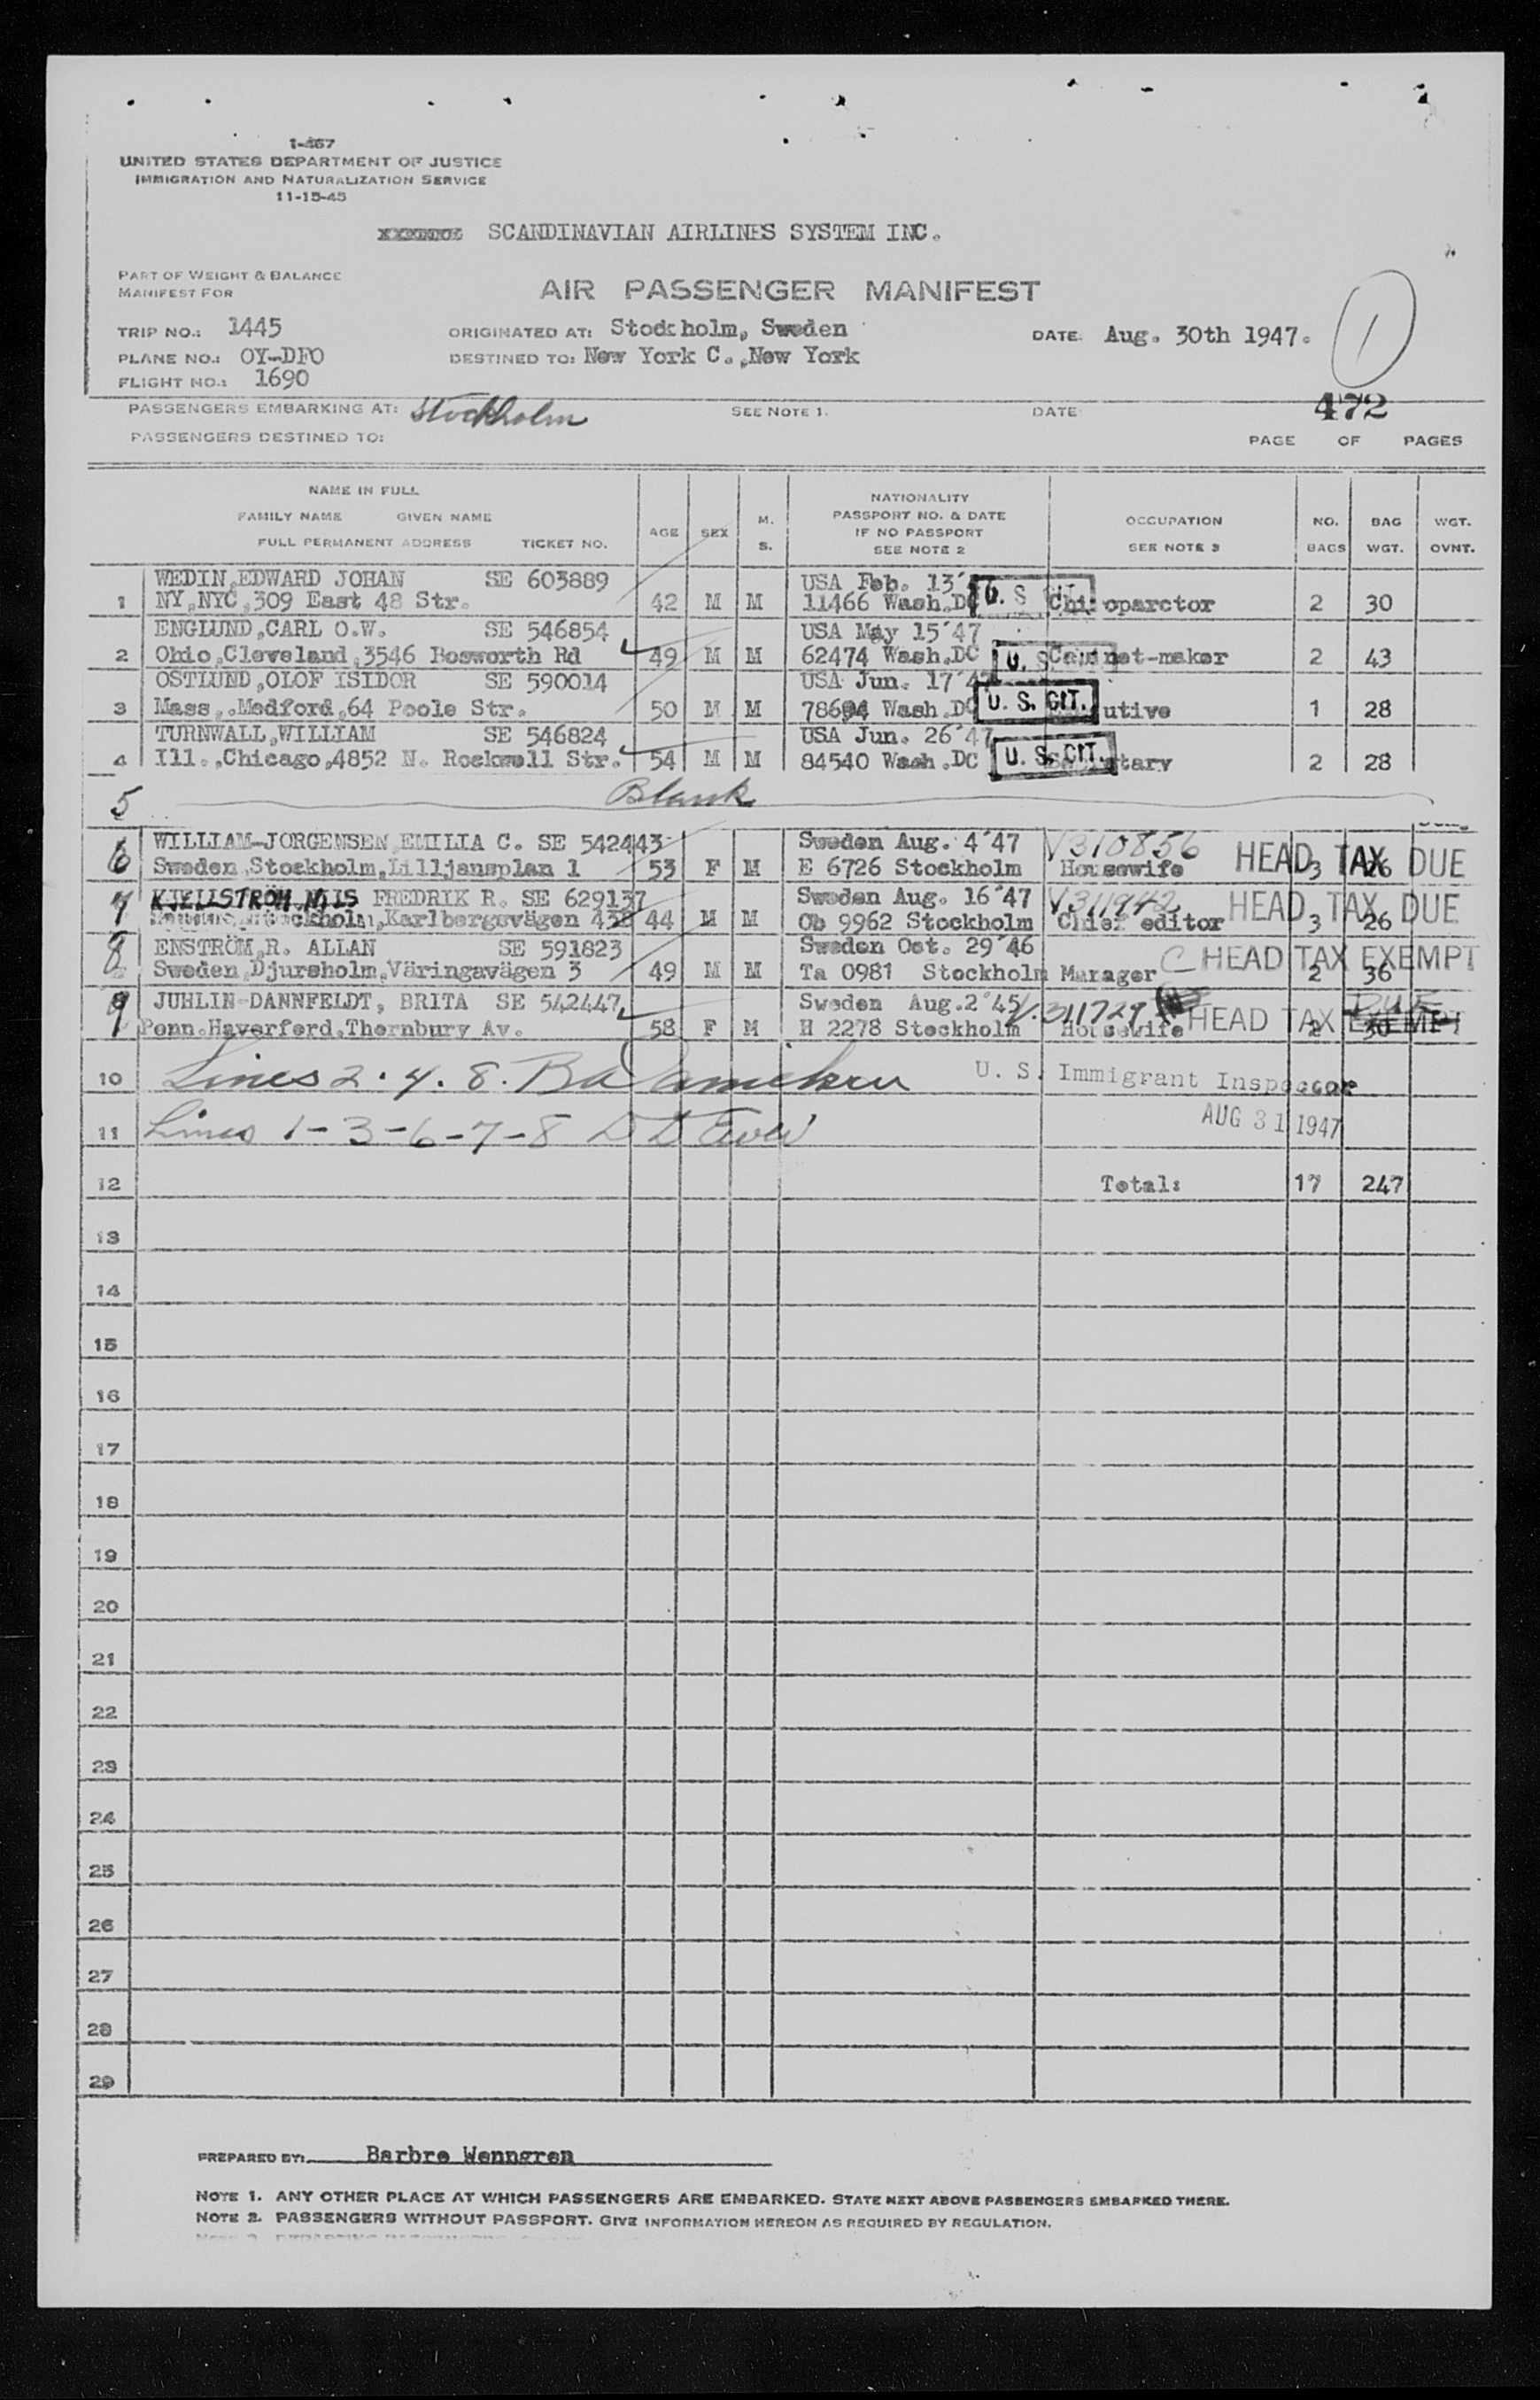 1-467
UNITED STATES DEPARTMENT OF JUSTICE
IMMIGRATION AND NATURALIZATION SERVICE
11-15-45
SCANDINAVIAN AIRLINES SYSTEM INC.
PART OF WEIGHT & BALANCE
MANIFEST FOR
AIR PASSENGER MANIFEST
1
TRIP NO.: 1445 ORIGINATED AT: Stockholm, Sweden DATE: Aug. 30th 1947.
PLANE NO.: OY-DFO DESTINED TO: New York C.,New York
FLIGHT NO.: 1690
PASSENGERS EMBARKING AT: Stockholm SEE NOTE 1. DATE 472
PASSENGERS DESTINED TO: PAGE OF PAGES
NAME IN FULL
FAMILY NAME GIVEN NAME
FULL PERMANENT ADDRESS TICKET NO.
AGE SEX M. S.
NATIONALITY
PASSPORT NO. & DATE
IF NO PASSPORT
SEE NOTE 2
OCCUPATION
SEE NOTE 3
NO. BAGS
BAG WGT.
WGT. OVNT.
WEDIN,EDWARD JOHAN SE 603889 USA Feb. 13
1 NY,NYC,309 East 48 Str. 42 M M 11466 Wash.DC U. S. CIT. Chiroparctor 2 30
ENGLUND,CARL O.W. SE 546854 USA May 15´47
2 Ohio,Cleveland,3546 Bosworth Rd 49 M M 62474 Wash.DC U. S. Cabinet-maker 2 43
OSTLUND,OLOF ISIDOR SE 590014 USA Jun. 17´47
3 Mass.,Medford,64 Poole Str. 50 M M 78694 Wash.DC U. S. CIT. utive 1 28
TURNWALL,WILLIAM SE 546824 USA Jun. 26´47
4 Ill.,Chicago,4852 N. Rockwell Str. 54 M M 84540 Wash.DC U. S. CIT. tary 2 28
5 Blank
WILLIAM-JORGENSEN,EMILIA C. SE 542443 Sweden Aug. 4´47 V310856
6 Sweden,Stockholm,Lilljansplan 1 53 F M E 6726 Stockholm Housewife HEAD TAX DUE 3 26
KJELLSTRÖM,NILS FREDRIK R. SE 629137 Sweden Aug. 16´47 V311942
7 Stockholm,Karlbergsvägen 44 M M Ob 9962 Stockholm Chief editor HEAD TAX DUE 3 26
ENSTRÖM,R. ALLAN SE 591823 Sweden Oct. 29´46
8 Sweden,Djursholm,Väringavägen 3 49 M M Ta 0981 Stockholm Manager C HEAD TAX EXEMPT 2 36
JUHLIN-DANNFELDT, BRITA SE 542447 Sweden Aug.2´45 V.311729 DUE
9 Penn.Haverford,Thornbury Av. 58 F M H 2278 Stockholm Housewife HEAD TAX EXEMPT 2 30
10 Lines 2.4.8. U. S. Immigrant Inspector
11 Lines 1-3-6-7-8 AUG 31 1947
12 Total: 17 247
13
14
15
16
17
18
19
20
21
22
23
24
25
26
27
28
29
PREPARED BY: Barbro Wenngren
NOTE 1. ANY OTHER PLACE AT WHICH PASSENGERS ARE EMBARKED. STATE NEXT ABOVE PASSENGERS EMBARKED THERE.
NOTE 2. PASSENGERS WITHOUT PASSPORT. GIVE INFORMATION HEREON AS REQUIRED BY REGULATION.